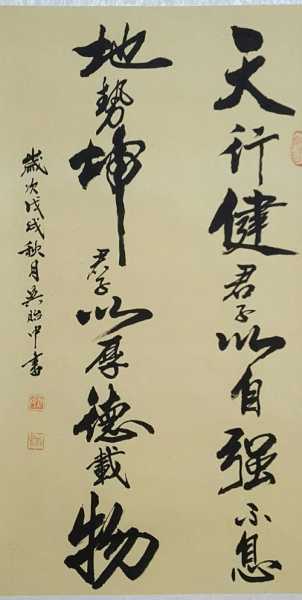 天行健君子以自强不息
地勢坤君子以厚德載物
歲次戊戌秋月吳貽中書